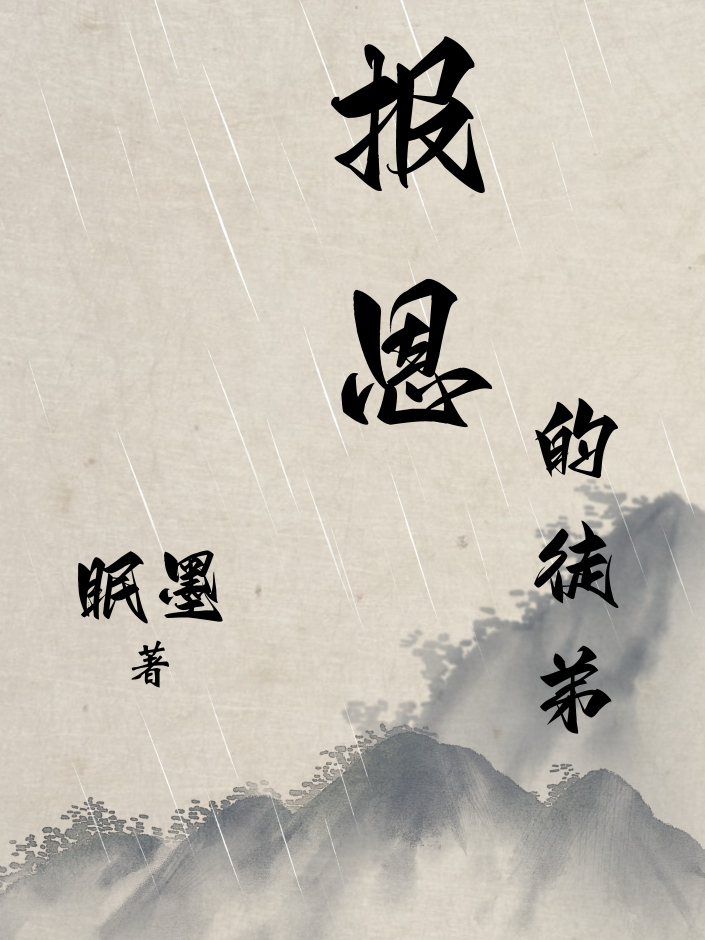 报恩
的徒弟
眠墨
著